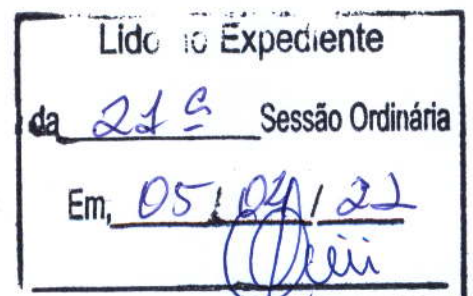 Lido no Expediente
da 21ª Sessão Ordinária
Em, 05/04/22